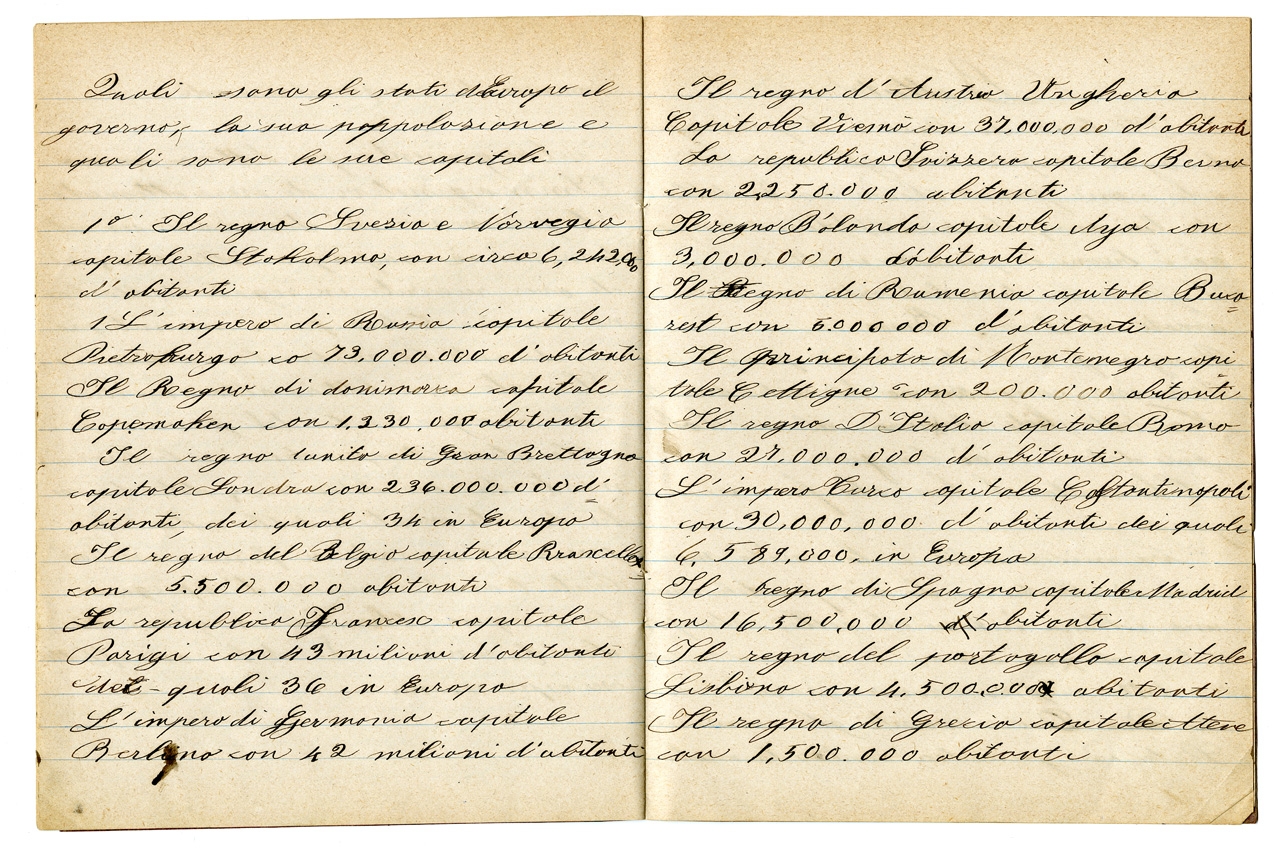 Quali sono gli stati d'Europa il
governo, la sua poppolazione e
quali sono le sue capitali
1º Il regno Svezia e Norvegia
capitale Stokolmo, con circa 6,242,000
d'abitanti
1 L'impero di Russia capitale
Pietroburgo co 73,000.000 d'abitanti
Il Regno di danimarca capitale
Copemaken con 1.230,000 abitanti
Il regno unito di Gran Brettagna
capitale Londra con 236.000.000 d'
abitanti, dei quali 34 in Europa
Il regno del Belgio capitale
con 5.500.000 abitanti
La republica Francese capitale
Parigi con 43 milioni d'abitanti
dei quali 36 in Europa
L'impero di Germania capitale
Berlino con 42 milioni d'abitanti
Il regno d'Austria Ungheria
Capitale Vienna con 37.000.000 d'abitanti
La republica Svizzera capitale Berna
con 2,250.000 abitanti
Il regno D'olanda capitale Aya con
3,000.000 d'abitanti
Il Regno di Rumenia capitale Buca
rest con 5.000000 d'abitanti
Il principato di Montenegro capi
tale Cettigne con 200.000 abitanti
Il regno D'Italia capitale Roma
con 27,000.000 d'abitanti
L'impero Turco capitale Costantinapoli
con 30,000,000 d'abitanti dei quali
6,589,000, in Europa
Il regno di Spagna capitale Madrid
con 16,500,000 d'abitanti
Il regno del portogallo capitale
Lisbina con 4.500.000 abitanti
Il regno di Grecia capitale Atene
con 1,500.000 abitanti